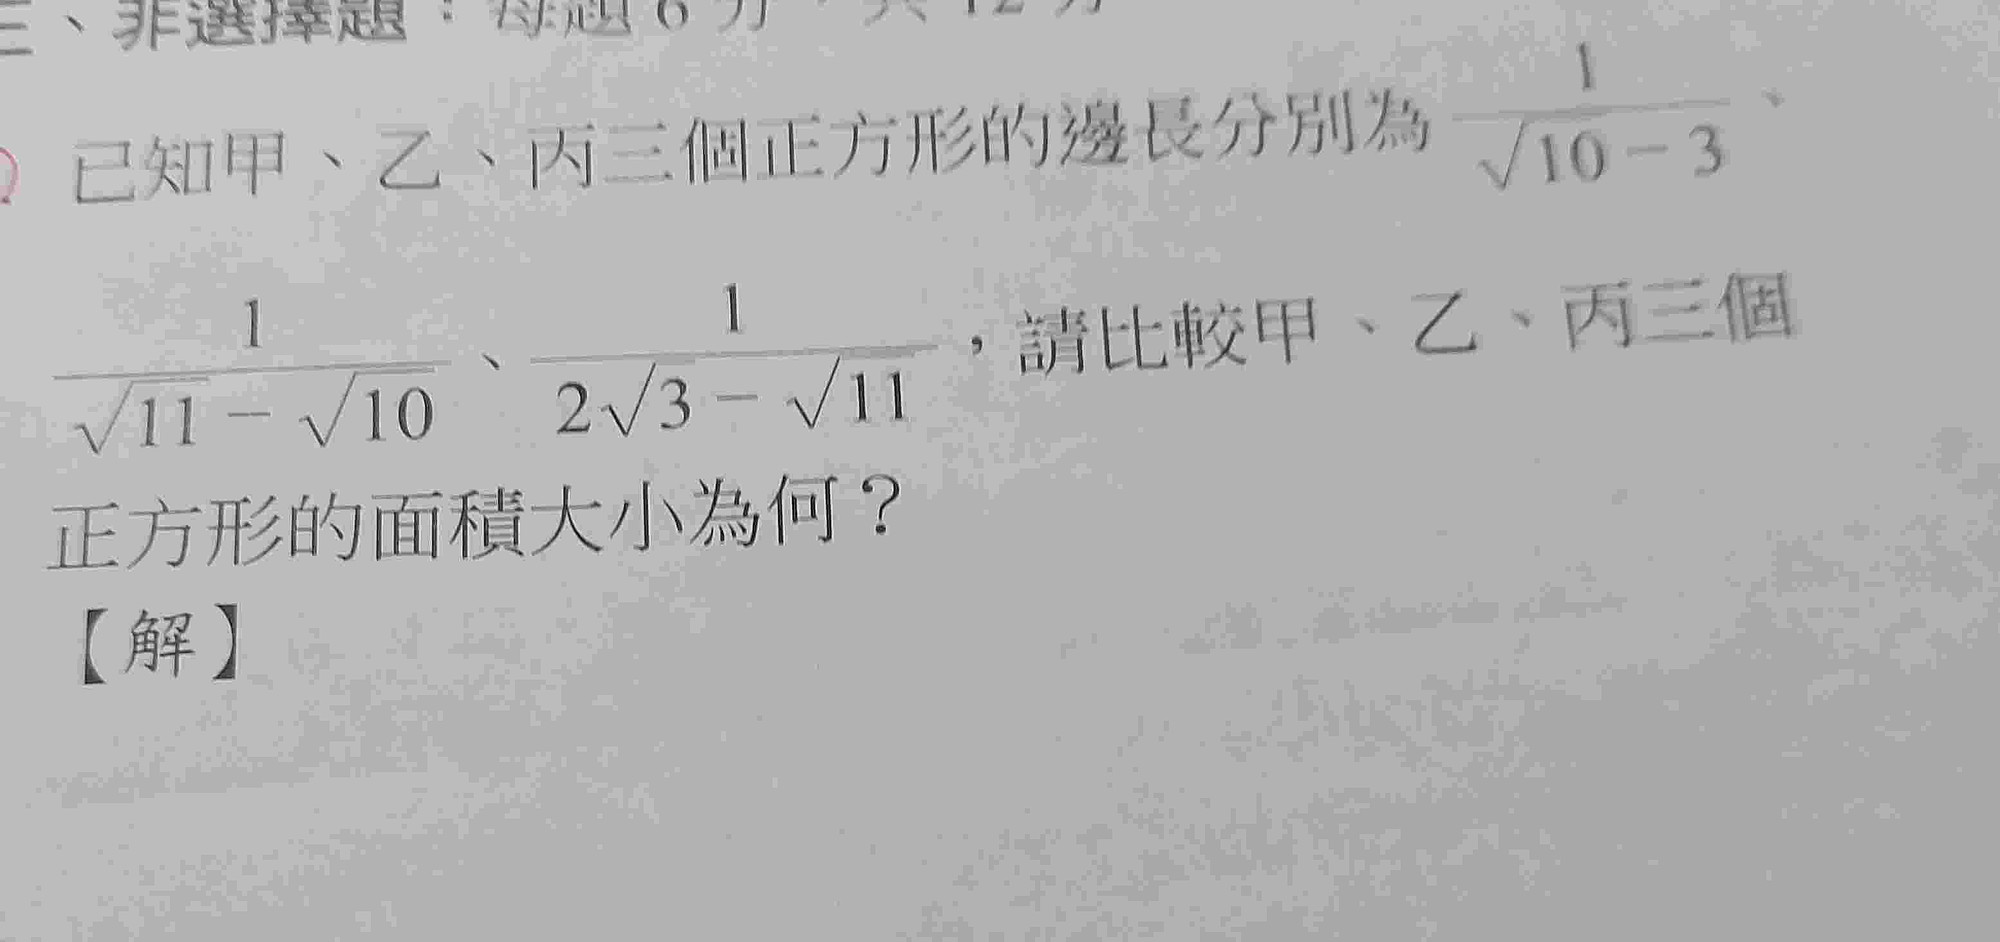 三、非選擇題：每題 6 分，共 12 分
已知甲、乙、丙三個正方形的邊長分別為 1/(√10 − 3)、
1/(√11 − √10)、1/(2√3 − √11)，請比較甲、乙、丙三個
正方形的面積大小為何？
【解】